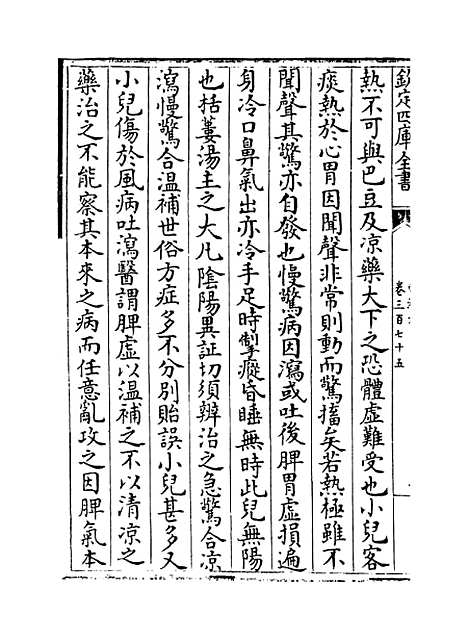 欽定四庫全書
卷三百七十五
熱不可與巴豆及凉藥大下之恐體虛難受也小兒客
痰熱於心胃因聞聲非常則動而驚搐矣若熱極雖不
聞聲其驚亦自發也慢驚病因瀉或吐後脾胃虛損遍
身冷口鼻氣出亦冷手足時掣瘲昏睡無時此兒無陽
也栝蔞湯主之大凡陰陽異証切須辨治之急驚合凉
瀉慢驚合温補世俗方症多不分别貽誤小兒甚多又
小兒傷於風病吐瀉醫謂脾虛以温補之不以清凉之
藥治之不能察其本來之病而任意亂攻之因脾氣本